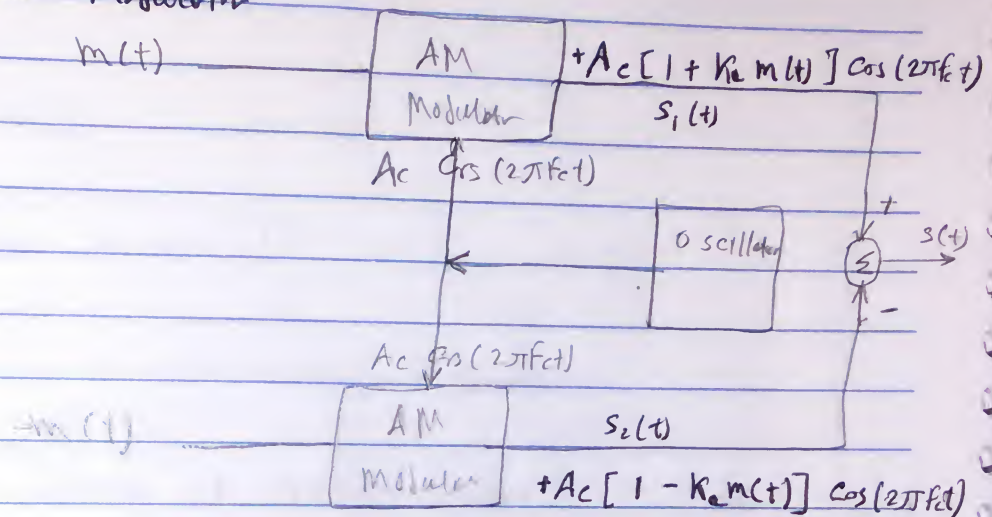 m(t)
AM
Modulator
+Ac[1 + Ka m(t)] Cos(2πfct)
s₁(t)
Ac Cos(2πfct)
Oscillator
+
Σ
s(t)
-
Ac Cos(2πfct)
-m(t)
AM
Modulator
s₂(t)
+Ac[1 - Ka m(t)] Cos(2πfct)